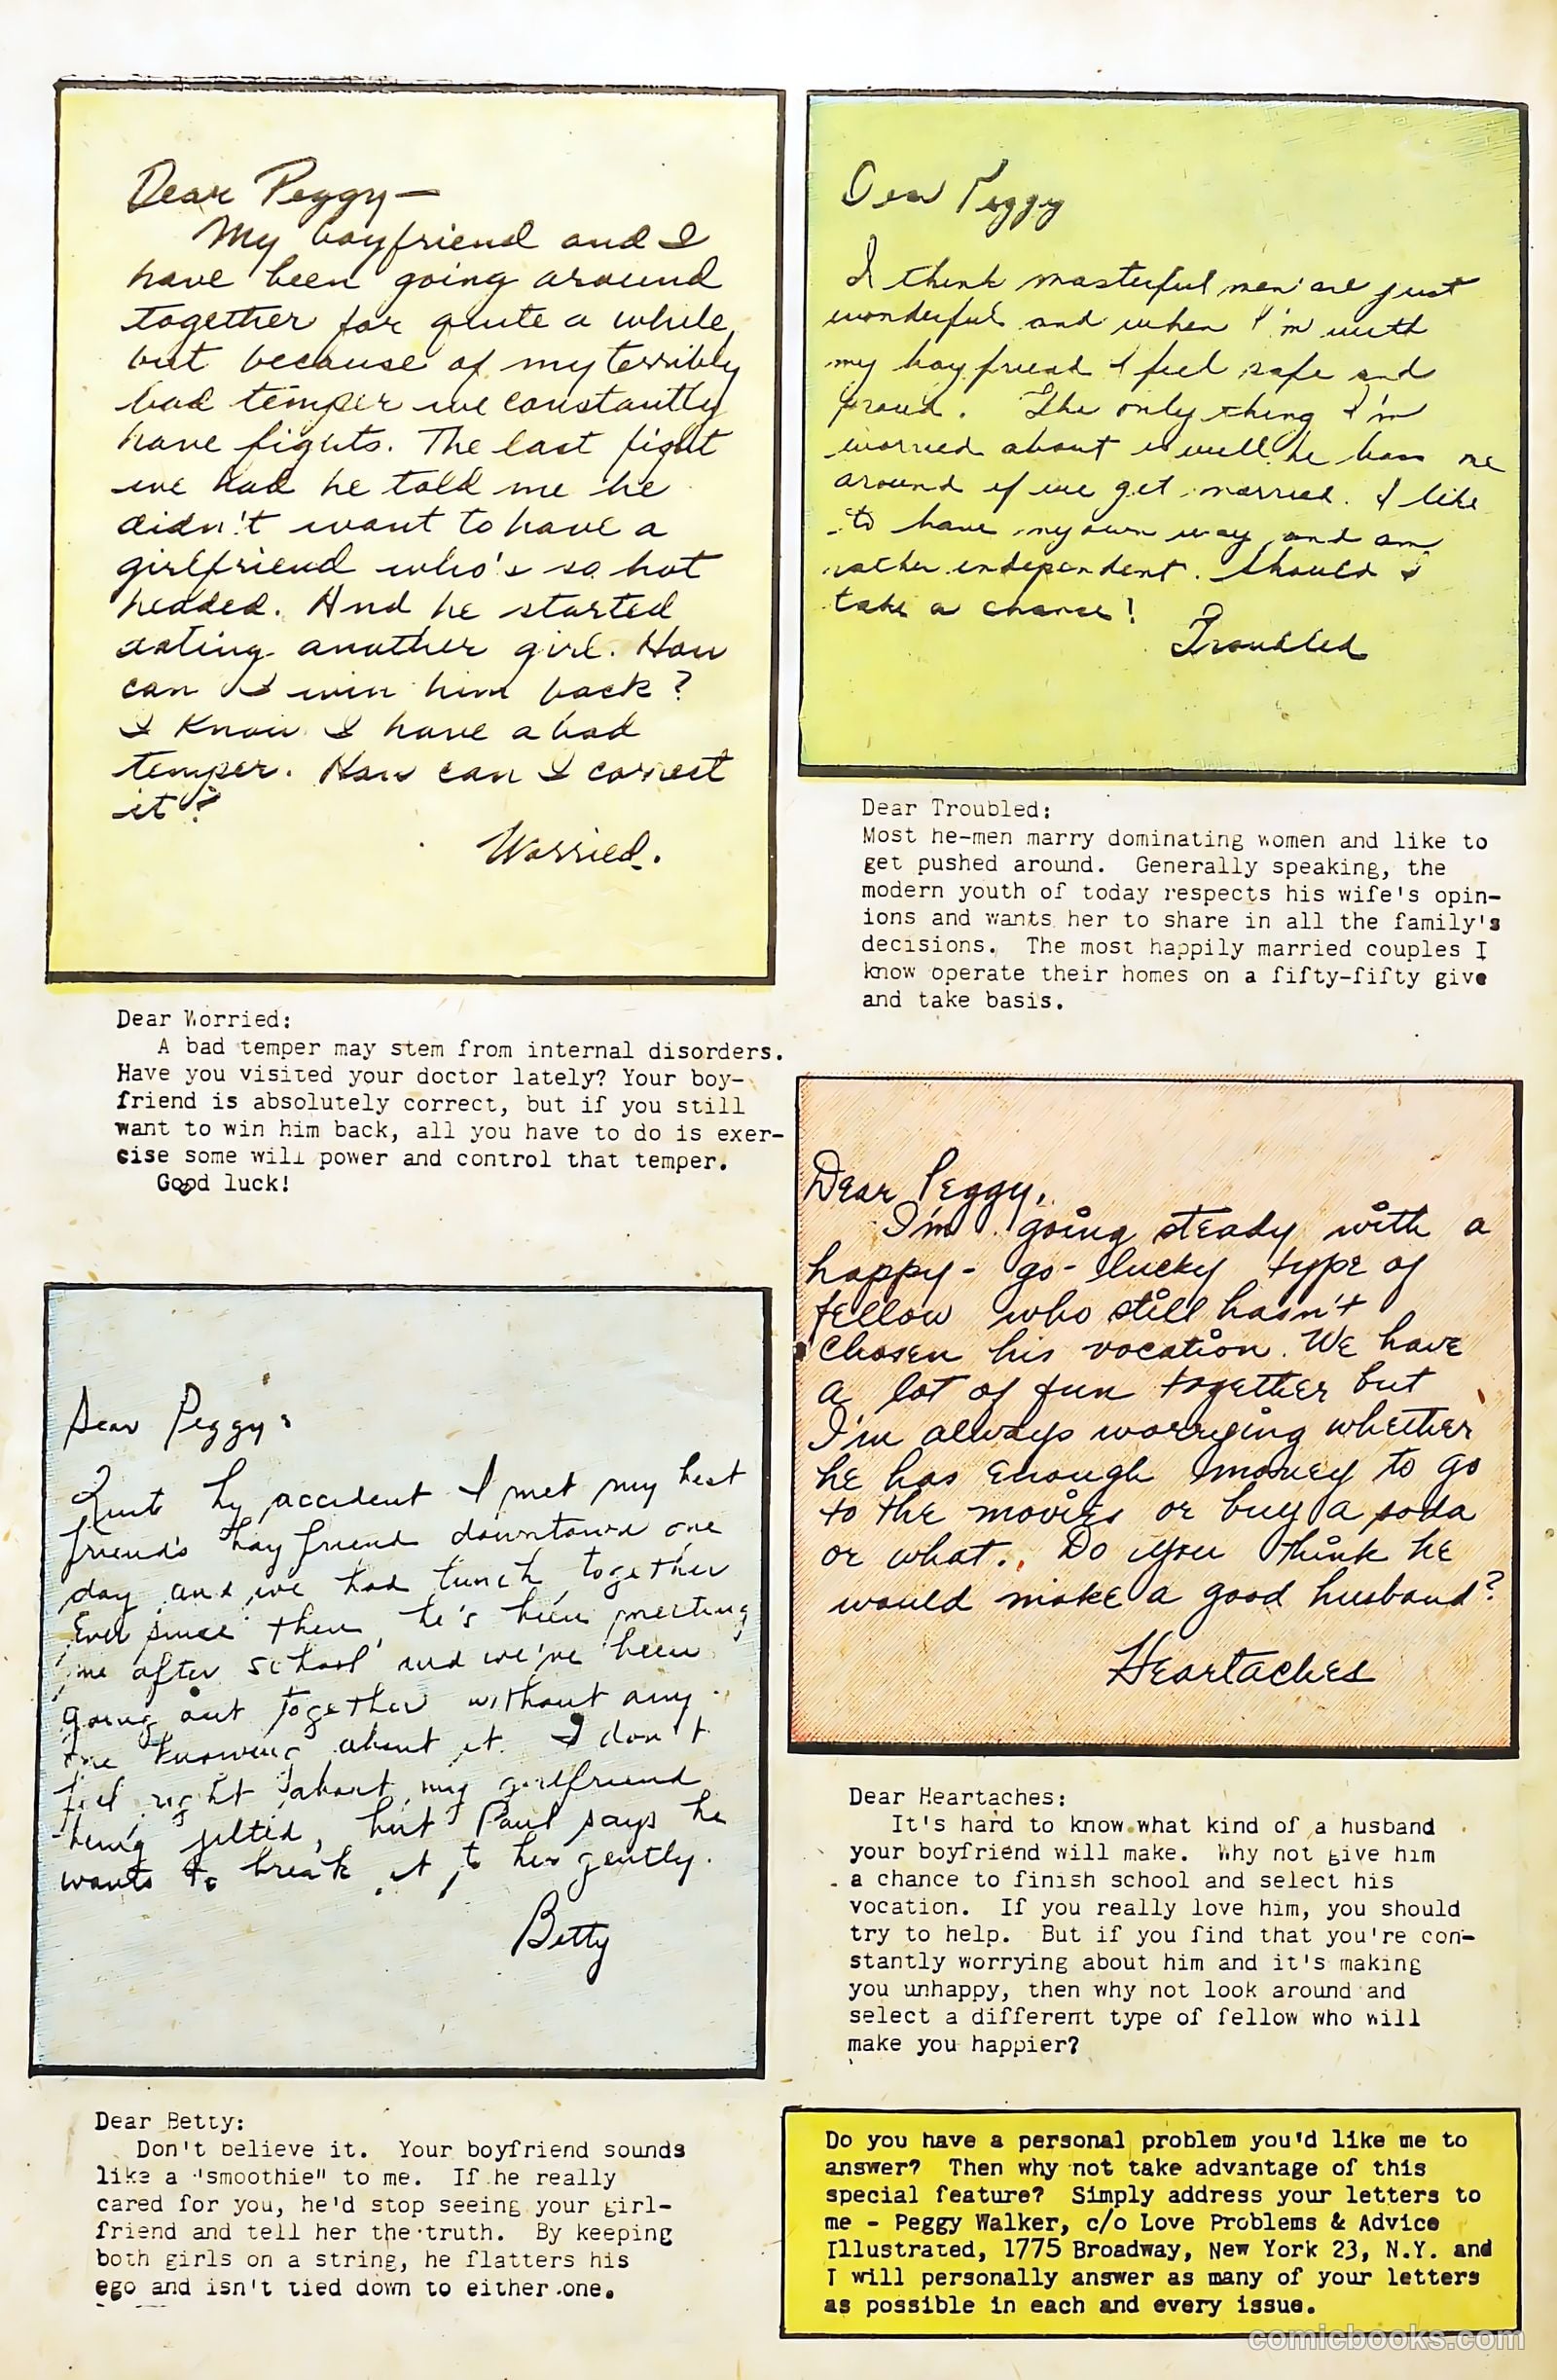 Dear Peggy—
My boyfriend and I
have been going around
together for quite a while,
but because of my terribly
bad temper we constantly
have fights. The last fight
we had he told me he
didn't want to have a
girlfriend who's so hot
headed. And he started
dating another girl. How
can I win him back?
I know I have a bad
temper. How can I correct
it?
Worried.
Dear Worried:
A bad temper may stem from internal disorders.
Have you visited your doctor lately? Your boy-
friend is absolutely correct, but if you still
want to win him back, all you have to do is exer-
cise some will power and control that temper.
Good luck!
Dear Peggy:
Quite by accident I met my best
friend's boyfriend downtown one
day and we had lunch together
Ever since then, he's been meeting
me after school and we've been
going out together without any
one knowing about it. I don't
feel right about my girlfriend
being jilted, but Paul says he
wants to break it to her gently.
Betty
Dear Betty:
Don't believe it. Your boyfriend sounds
like a "smoothie" to me. If he really
cared for you, he'd stop seeing your girl-
friend and tell her the truth. By keeping
both girls on a string, he flatters his
ego and isn't tied down to either one.
Dear Peggy
I think masterful men are just
wonderful and when I'm with
my boyfriend I feel safe and
proud. The only thing I'm
worried about is will he boss me
around if we get married. I like
to have my own way and am
rather independent. Should I
take a chance!
Troubled
Dear Troubled:
Most he-men marry dominating women and like to
get pushed around. Generally speaking, the
modern youth of today respects his wife's opin-
ions and wants her to share in all the family's
decisions. The most happily married couples I
know operate their homes on a fifty-fifty give
and take basis.
Dear Peggy,
I'm going steady with a
happy-go-lucky type of
fellow who still hasn't
chosen his vocation. We have
a lot of fun together but
I'm always worrying whether
he has enough money to go
to the movies or buy a soda
or what. Do you think he
would make a good husband?
Heartaches
Dear Heartaches:
It's hard to know what kind of a husband
your boyfriend will make. Why not give him
a chance to finish school and select his
vocation. If you really love him, you should
try to help. But if you find that you're con-
stantly worrying about him and it's making
you unhappy, then why not look around and
select a different type of fellow who will
make you happier?
Do you have a personal problem you'd like me to
answer? Then why not take advantage of this
special feature? Simply address your letters to
me - Peggy Walker, c/o Love Problems & Advice
Illustrated, 1775 Broadway, New York 23, N.Y. and
I will personally answer as many of your letters
as possible in each and every issue.
comicbooks.com